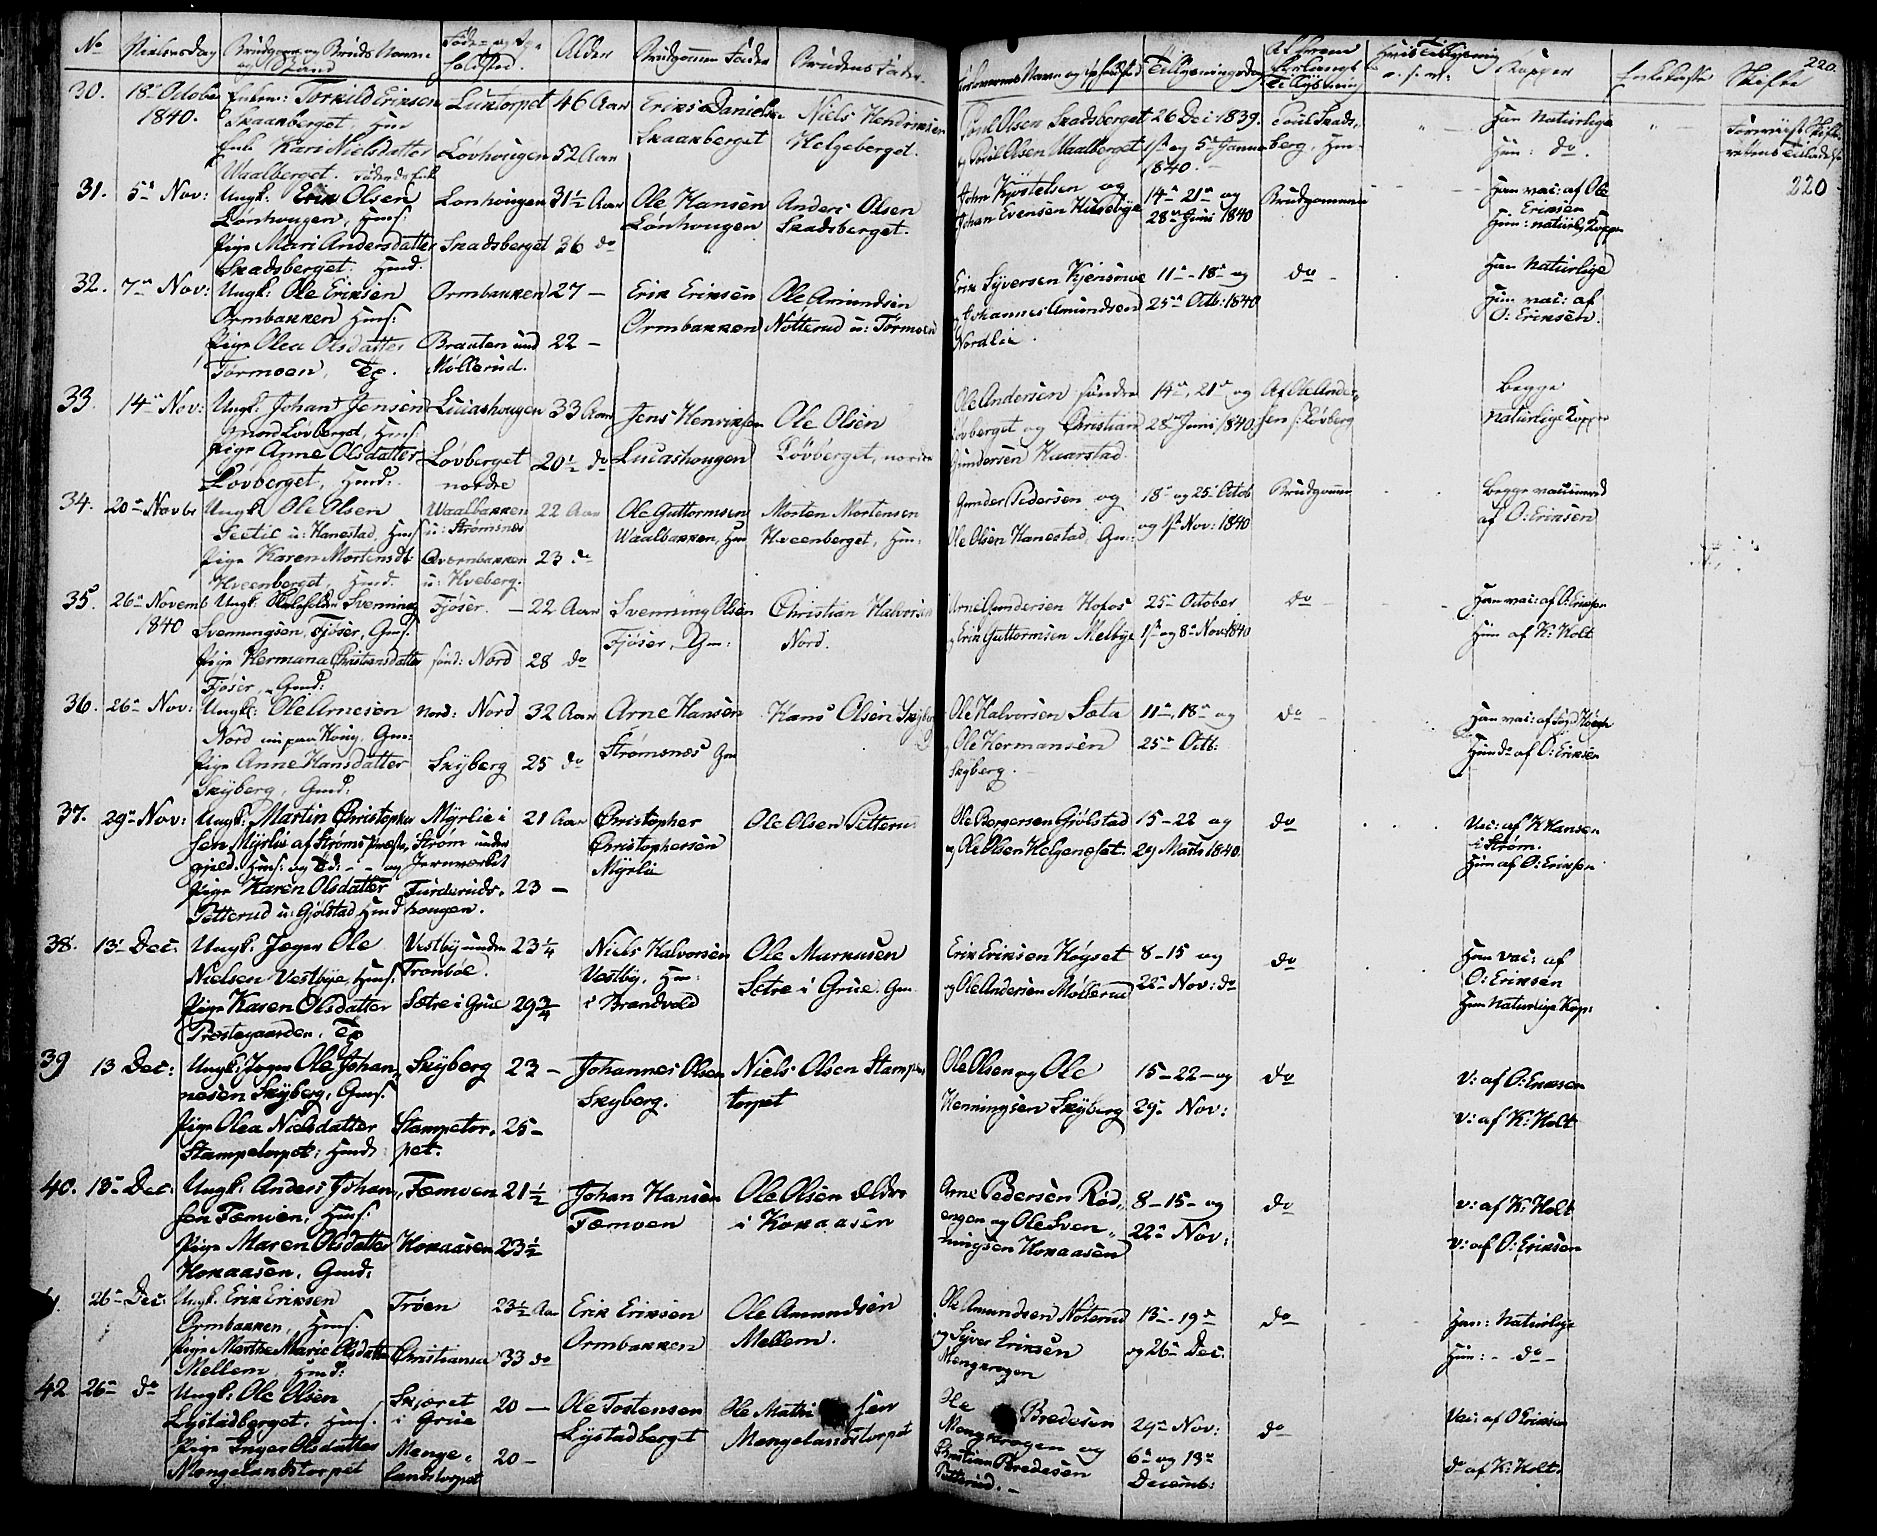 No
Vielsesdag
Brudgom og Bruds Navne
og Stand
Alder
Brudgommens Fader
Brudens Fader
Forlovernes Navn og Opholdsted
Tillysningsdag
Af hvem
forlangt
Tillysning
Kopper
Enkekasse
Skifte
220.
30.
18de October
1840.
Enkem: Torkild Eriksen
Skaaraberget, Hus
Enke Kari Nielsdatter
Waalberget.
Luktorpet
Lovhougen
46 Aar
52 Aar
Erik Danielsen
Skaaraberget
Niels Hendriksen
Helgeberget.
Poul Olsen Skadsberget
og Poul Olsen Waalberget
26 Dec 1839.
1ste og 5te Januar
1840.
Poul Skads-
berg, Hus.
Han naturlige
Hun: do.
220
31.
5te Nov:
Ungk. Erik Olsen
Lønhougen, Husf.
Pige Mari Andersdatter
Skadsberget. Husd.
Lonhougen
Skadsberget
31½ Aar
36 do
Ole Hansen
Lønhougen
Anders Olsen
Skadsberget.
Johan Evensen Hilsebye
14de 21de og
28de Juni 1840
Brudgommen
Han vac: af Ole
Eriksen
Hun: naturlig Kopper
32.
7de Nov:
Ungk: Ole Eriksen
Ormbakken Husf:
Pige Olea Olsdatter
Tørmoen, Tj.
Ormbakken
Braaten und
Møllerud.
27 —
22 —
Erik Eriksen
Ormbakken
Ole Amundsen
Nøtterud u: Tørmoen
Erik Syversen Kjensmoe
og Johannes Amundsen
Nordlie
11te 18de og
25de Octb: 1840
do
Han Naturlige
Hun vac: af
O: Eriksen.
33.
14de Nov:
Ungk. Johan Jensen
nord Lovberget, Husf.
Pige Anne Olsdatter
Lovberget, Husd.
Lucashougen
Løvberget
nordre
33 Aar
20½ do
Jens Henriksen
Lucashougen
Ole Olsen
Løvberget, nordre
Ole Andersen søndre
Løvberget og Christian
Gundersen Kaarstad
14de, 21de og
28de Juni 1840
Af Ole Ander-
sen s: Løvberg
Begge
Naturlige Kopper
34.
20de Novbr
Ungk Ole Olsen
Sættie u: Hanestad, Husf
Pige Karen Mortensdt
Hveenberget, Husd.
Waalbakken
u: Strømsnæs
Qværnbakken
u: Hveberg.
22 Aar
23 do
Ole Guttormsen
Waalbakken, Hus
Morten Mortensen
Hveenberget, Hus:
Gunder Pedersen og
Ole Olsen Hanestad, Gm:
18de og 25de Octob
og 1ste Nov: 1840
Brudgommen
Begge vaccinered
af O: Eriksen
35.
26de Novemb
1840
Ungk. Svenning
Svenningsen, Fjøser, Gmf.
Pige Hermana Christiansdatter
Fjøser, Gmd:
Fjøser.
sønd: Nord
22 Aar
28 do
Svenning Olsen
Fjøser, Gm:
Christian Halvorsen
Nord.
Arne Gundersen Hofos
og Erik Guttormsen Melbye
25de October
1ste og 8de Nov: 1840
do
Han vac: af O: Eriksen
Hun af K: Holt
36.
26de Nov:
Ungk: Ole Arnesen
Nord nu paa Kong, Gm:
Pige Anne Hansdatter
Skyberg, Gmd:
Nord: Nord
Skyberg
32 Aar
25 do
Arne Hansen
Strømsnæs Gm
Hans Olsen Skyberg
Ole Halvorsen Sæta
og Ole Hermansen
Skyberg.
11te, 18de og
25de Octb:
do
Hun do af O: Eriksen
37.
29de Nov:
Ungk: Martin Christopher-
sen Myrlie af Strøms Præste-
gjeld. Husf: og
Pige Karen Olsdatter
Petterud u: Gjølstad Husd
Myrlie i
Strøm under
Jernværket
Furderuds-
hougen.
21 Aar
23 —
Christopher
Christophersen
Myrlie
Ole Olsen Petterud
Ole Børgersen Gjølstad
og Ole Olsen Helgenøset
15-22 og
29 Marts 1840.
do
Vac: af K Hansen
i Strøm.
Hun af O: Eriksen
38.
13de Dec:
Ungk. Jæger Ole
Nielsen Vestbye, Husf.
Pige Karen Olsdatter
Præstegaarden. Tj
Vestby under
Tronbøl.
Sætre i Grue
23¼
29¾
Niels Halvorsen
Vestby, Hm:
i Brandvold
Ole Markusen
Sætre i Grue Gm
Erik Eriksen Høyset
og Ole Andersen Møllerud
8-15 og
22de Nov: do
do
Han vac: af
O: Eriksen
Hun Naturlige Kop:
39
13 Dec:
Ungk: Jæger Ole Johan-
nesen Skyberg, Gmf.
Pige Olea Nielsdatter
Stampetorpet: Husd:
Skyberg
Stampetor-
pet.
23 —
25 —
Johannes Olsen
Skyberg.
Niels Olsen Stampe-
torpet
Ole Olsen og Ole
Henningsen Skyberg
15-22-og
29de Nov:
do
V: af O: Eriksen
V: af K: Holt
40.
13de Dec:
Ungk: Anders Johan-
sen Tæmoen, Husf.
Pige Maren Olsdatter
Kokaasen, Gmd:
Tæmoen
Kokaasen
21½
23½
Johan Hansen
Tæmoen
Ole Olsen Ældre
i Kokaasen
Arne Pedersen Rød-
engen og Ole Sven-
ningsen Kokaasen
8-15-og
22de Nov:
do
V: af K: Holt
V: af O: Eriksen
26de Dec:
Ungk. Erik Eriksen
Ormbakken, Husf.
Pige Marthe Marie Olsdatter
Mellem Husd:
Trøen
Christiania
23½ Aar
33 do
Erik Eriksen
Ormbakken
Ole Amundsen
Mellem.
Ole Amundsen Noterud
og Syver Eriksen
Mengkrogen
13de-19de
og 26de Dec:
do
Han: Naturlige
Hun: - do -
42
26de do
Ungk: Ole Olsen
Lystadberget. Husf.
Pige Inger Olsdatter
Mengelandstorpet
Skjæret
i Grue
Menge-
landstorpet
20 —
20 —
Ole Tostensen
Lystadberget
Ole Mathi sen
Mengelandstorpet
Ole Bredesen
Mengkrogen og
Christian Bredesen
Petterud. —
29de Nov:
6te og 13de
Decemb:
do
Vac: af O Eriksen
do af K: Holt.